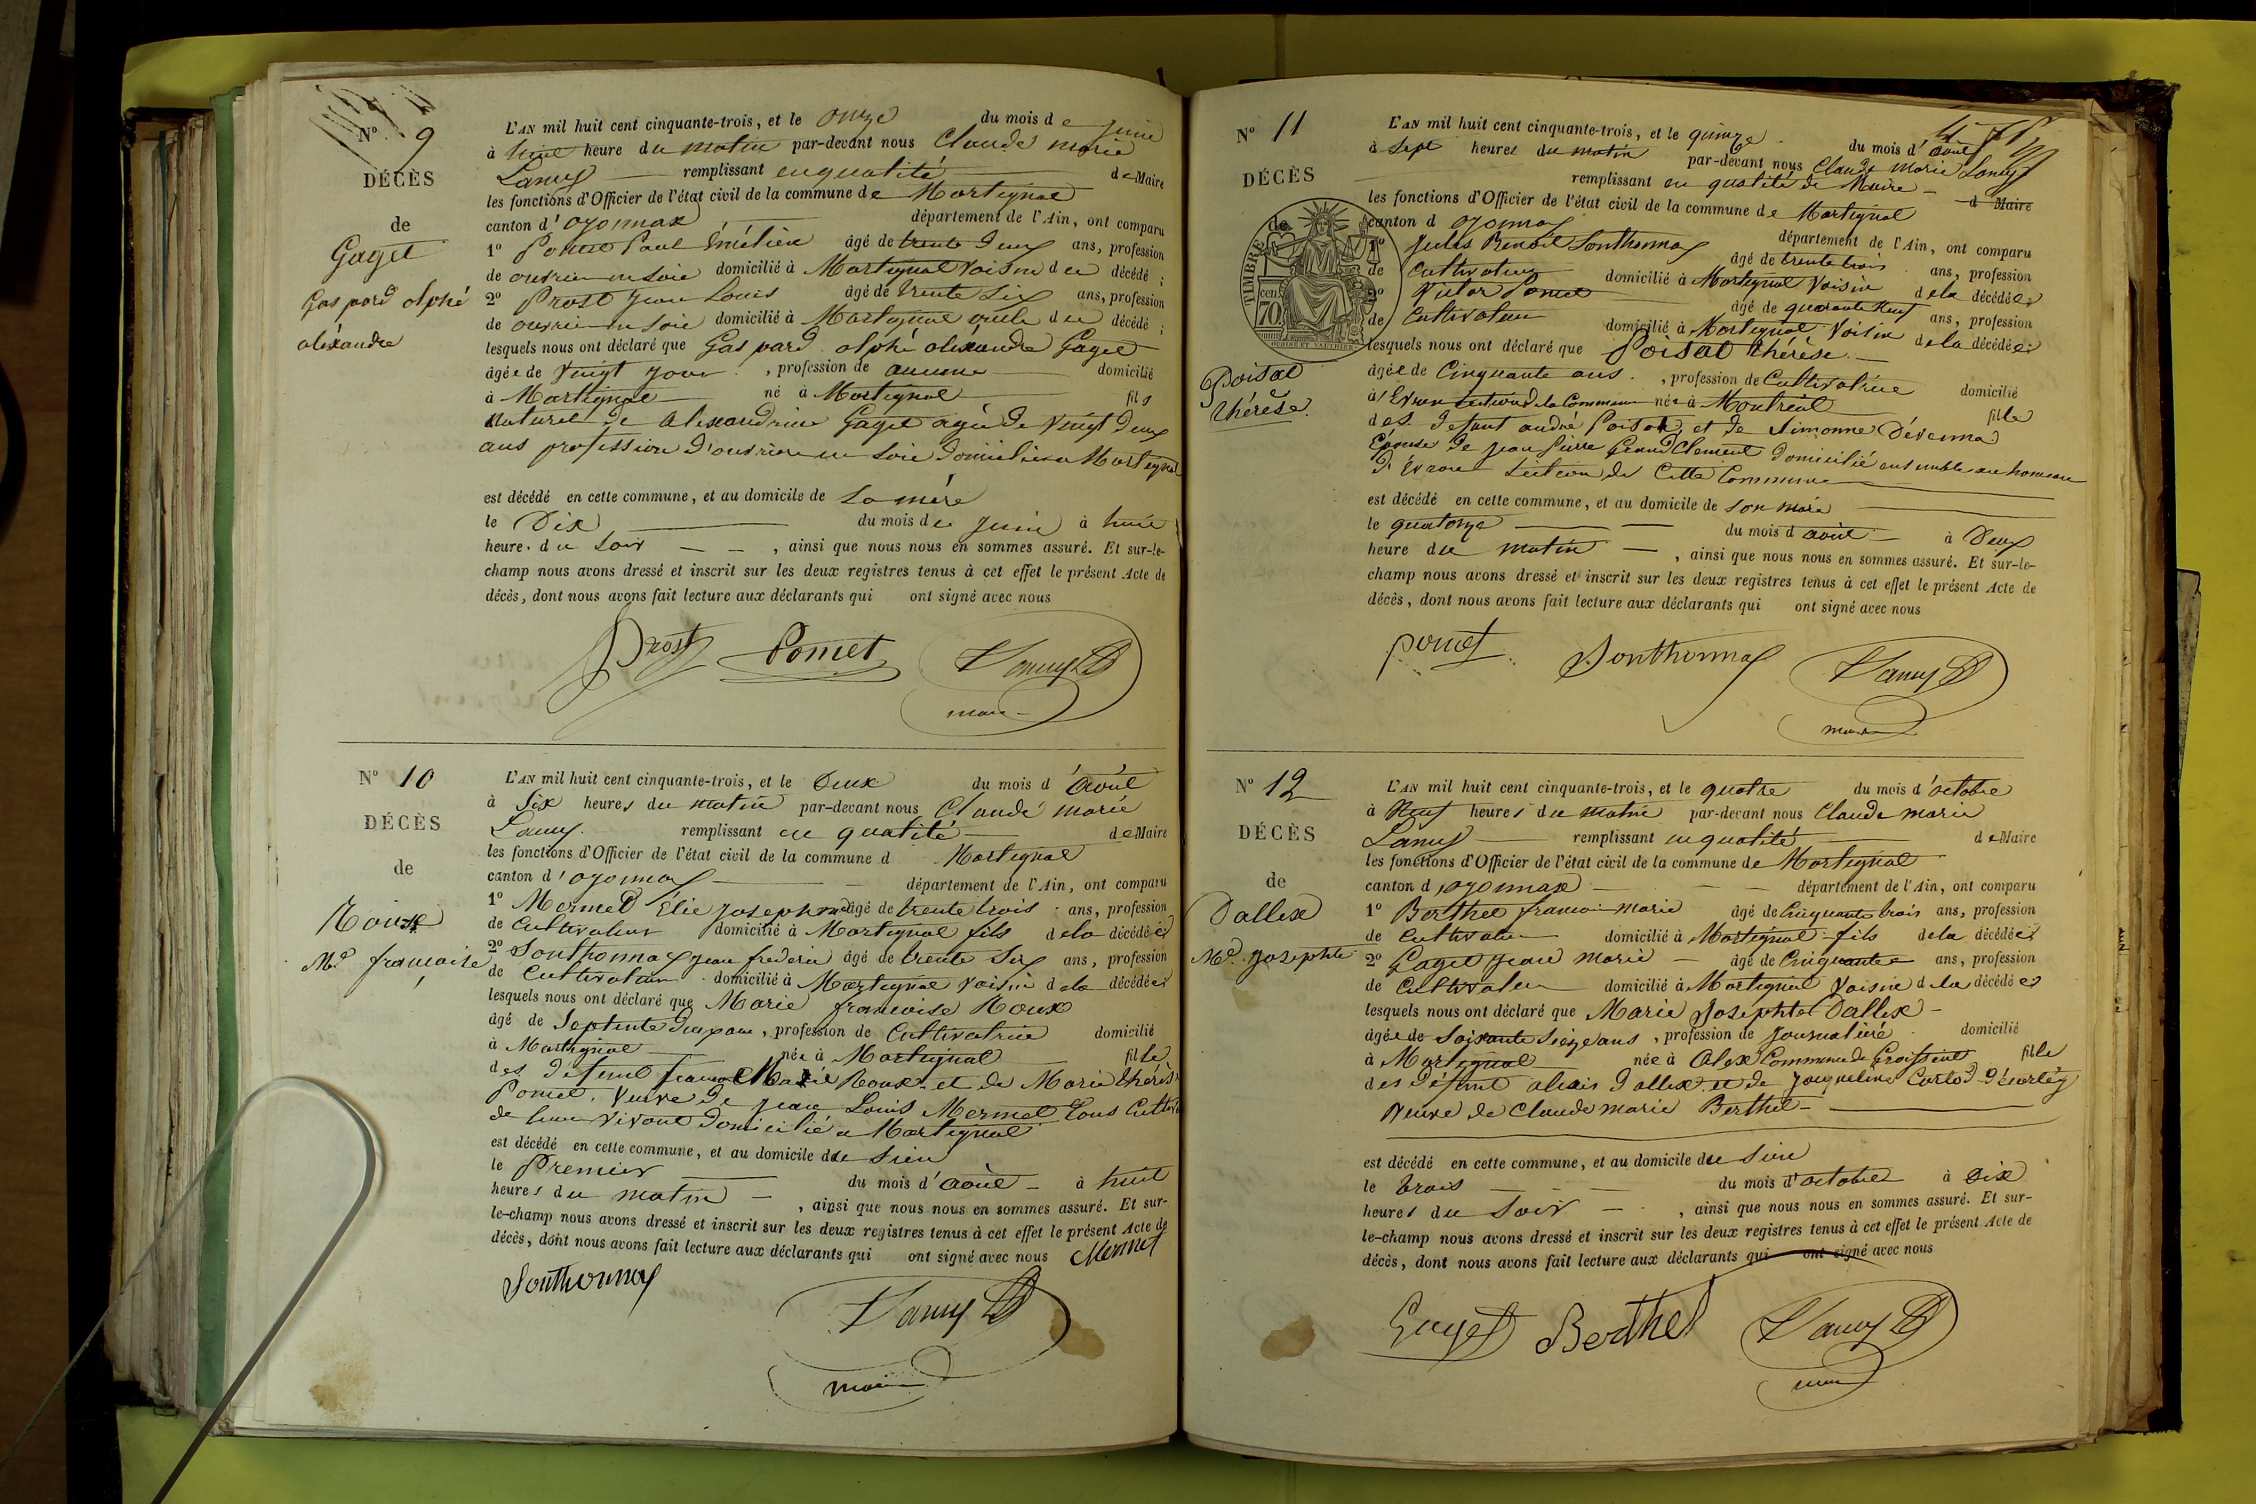 N° 9
DÉCÈS
de
Gaget
Gaspard olphé
alexandre
L'AN mil huit cent cinquante-trois, et le onze du mois de juin
à huit heure du matin par-devant nous Claude marie
Lamy remplissant en qualité de Maire
les fonctions d'Officier de l'état civil de la commune de Martignat
canton d'oyonnax département de l'Ain, ont comparu
1° Pomet Paul Émélien âgé de trente deux ans, profession
de ouvrier en soie domicilié à Martignat voisin du décédé ;
2° Prost Jean Louis âgé de trente six ans, profession
de ouvrier en soie domicilié à Martignat oncle du décédé ;
lesquels nous ont déclaré que Gaspard olphé alexandre Gaget
âgé de vingt jour , profession de aucune domicilié
à Martignat né à Martignat fils
naturel de alexandrine Gaget agée de vingt deux
ans profession d'ouvrière en soie domiciliée a Martignat
est décédé en cette commune, et au domicile de sa mère
le Dix du mois de juin à huit
heure du soir , ainsi que nous nous en sommes assuré. Et sur-le-
champ nous avons dressé et inscrit sur les deux registres tenus à cet effet le présent Acte de
décès, dont nous avons fait lecture aux déclarants qui ont signé avec nous
Prost Pomet Lamy
maire
N° 10
DÉCÈS
de
Roux
Me francoise
L'AN mil huit cent cinquante-trois, et le Deux du mois d'août
à Six heures du matin par-devant nous Claude marie
Lamy remplissant en qualité de Maire
les fonctions d'Officier de l'état civil de la commune d Martignat
canton d'oyonnax département de l'Ain, ont comparu
1° Mermet Élie Joseph âgé de trente trois ans, profession
de Cultivateur domicilié à Martignat fils de la décédée
2° Sonthonnax jean frederic âgé de trente Six ans, profession
de Cultivateur domicilié à Martignat voisin de la décédée
lesquels nous ont déclaré que Marie francoise Roux
âgé de Septente Deux ans, profession de Cultivatrice domicilié
à Martignat née à Martignat fille
des défunt Marie Roux et de Marie thérèse
Pomet, Veuve de Jean Louis Mermet tous Cultiv
de leur vivant domicilié a Martignat
est décédé en cette commune, et au domicile du sien
le Premier du mois d'août à huit
heures du matin , ainsi que nous nous en sommes assuré. Et sur-
le-champ nous avons dressé et inscrit sur les deux registres tenus à cet effet le présent Acte de
décès, dont nous avons fait lecture aux déclarants qui ont signé avec nous Mermet
Sonthonnax Lamy
maire
N° 11
DÉCÈS
de
TIMBRE
70 cen
Poisat
thérèse.
L'AN mil huit cent cinquante-trois, et le quinze du mois d'août
à sept heures du matin par-devant nous Claude Marie Lamy
remplissant en qualité de Maire d Maire
les fonctions d'Officier de l'état civil de la commune de Martignat
canton d oyonnax département de l'Ain, ont comparu
1° Jules Benoit Sonthonnax âgé de trente trois ans, profession
de Cultivateur domicilié à Martignat voisin de la décédée
2° Victor Pomet âgé de quarante neuf ans, profession
de Cultivateur domicilié à Martignat voisin de la décédée
lesquels nous ont déclaré que Poisat thérèse
âgée de Cinquante ans , profession de Cultivatrice domicilié
à Evron section de la Commune née à Montréal fille
des defunt andré Poisat et de Simonne
Epouse de jean Pierre Grand Clement domicilié ensemble au hameau
d'Évron section de Cette Commune
est décédé en cette commune, et au domicile de son mari
le quatorze du mois d août à Deux
heure du matin , ainsi que nous nous en sommes assuré. Et sur-le-
champ nous avons dressé et inscrit sur les deux registres tenus à cet effet le présent Acte de
décès, dont nous avons fait lecture aux déclarants qui ont signé avec nous
pomet Sonthonnax Lamy
maire
N° 12
DÉCÈS
de
Dallex
Me Josephte
L'AN mil huit cent cinquante-trois, et le quatre du mois d'octobre
à Neuf heures du matin par-devant nous Claude marie
Lamy remplissant en qualité de Maire
les fonctions d'Officier de l'état civil de la commune de Martignat
canton d oyonnax département de l'Ain, ont comparu
1° Berthet francois marie âgé de Cinquante trois ans, profession
de Cultivateur domicilié à Martignat fils de la décédée
2° Gaget Jean marie âgé de Cinquante ans, profession
de Cultivateur domicilié à Martignat voisin de la décédée
lesquels nous ont déclaré que Marie Josephte Dallex
âgée de soixante seize ans , profession de Journalière domicilié
à Martignat née à Alex Commune de Groissiat fille
des défunt Dallex et de Jacqueline
Veuve de Claude marie Berthet
est décédé en cette commune, et au domicile du sien
le trois du mois d'octobre à Dix
heures du Soir , ainsi que nous nous en sommes assuré. Et sur-
le-champ nous avons dressé et inscrit sur les deux registres tenus à cet effet le présent Acte de
décès, dont nous avons fait lecture aux déclarants qui ont signé avec nous
Gaget Berthet Lamy
maire